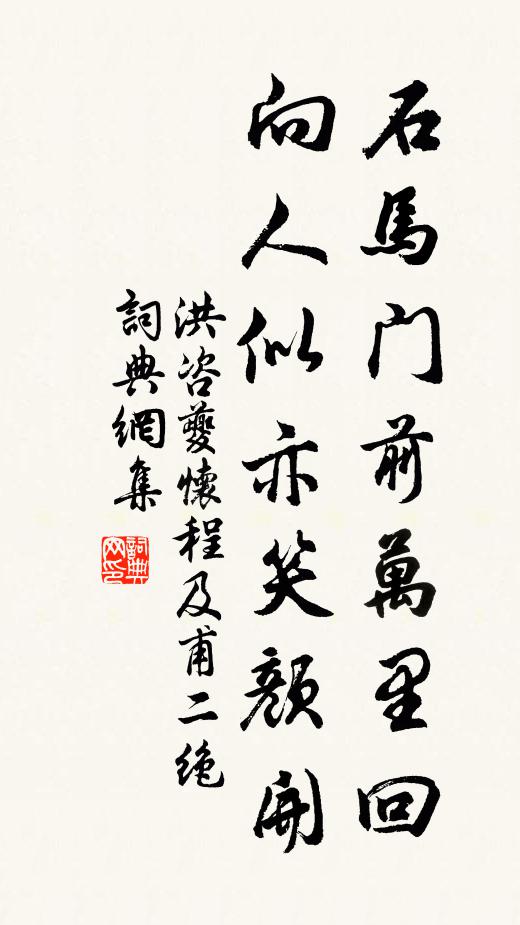 石馬門前萬里回
向人似亦笑顏開
洪咨夔懷程及甫二絶
詞典網集
詞典網印